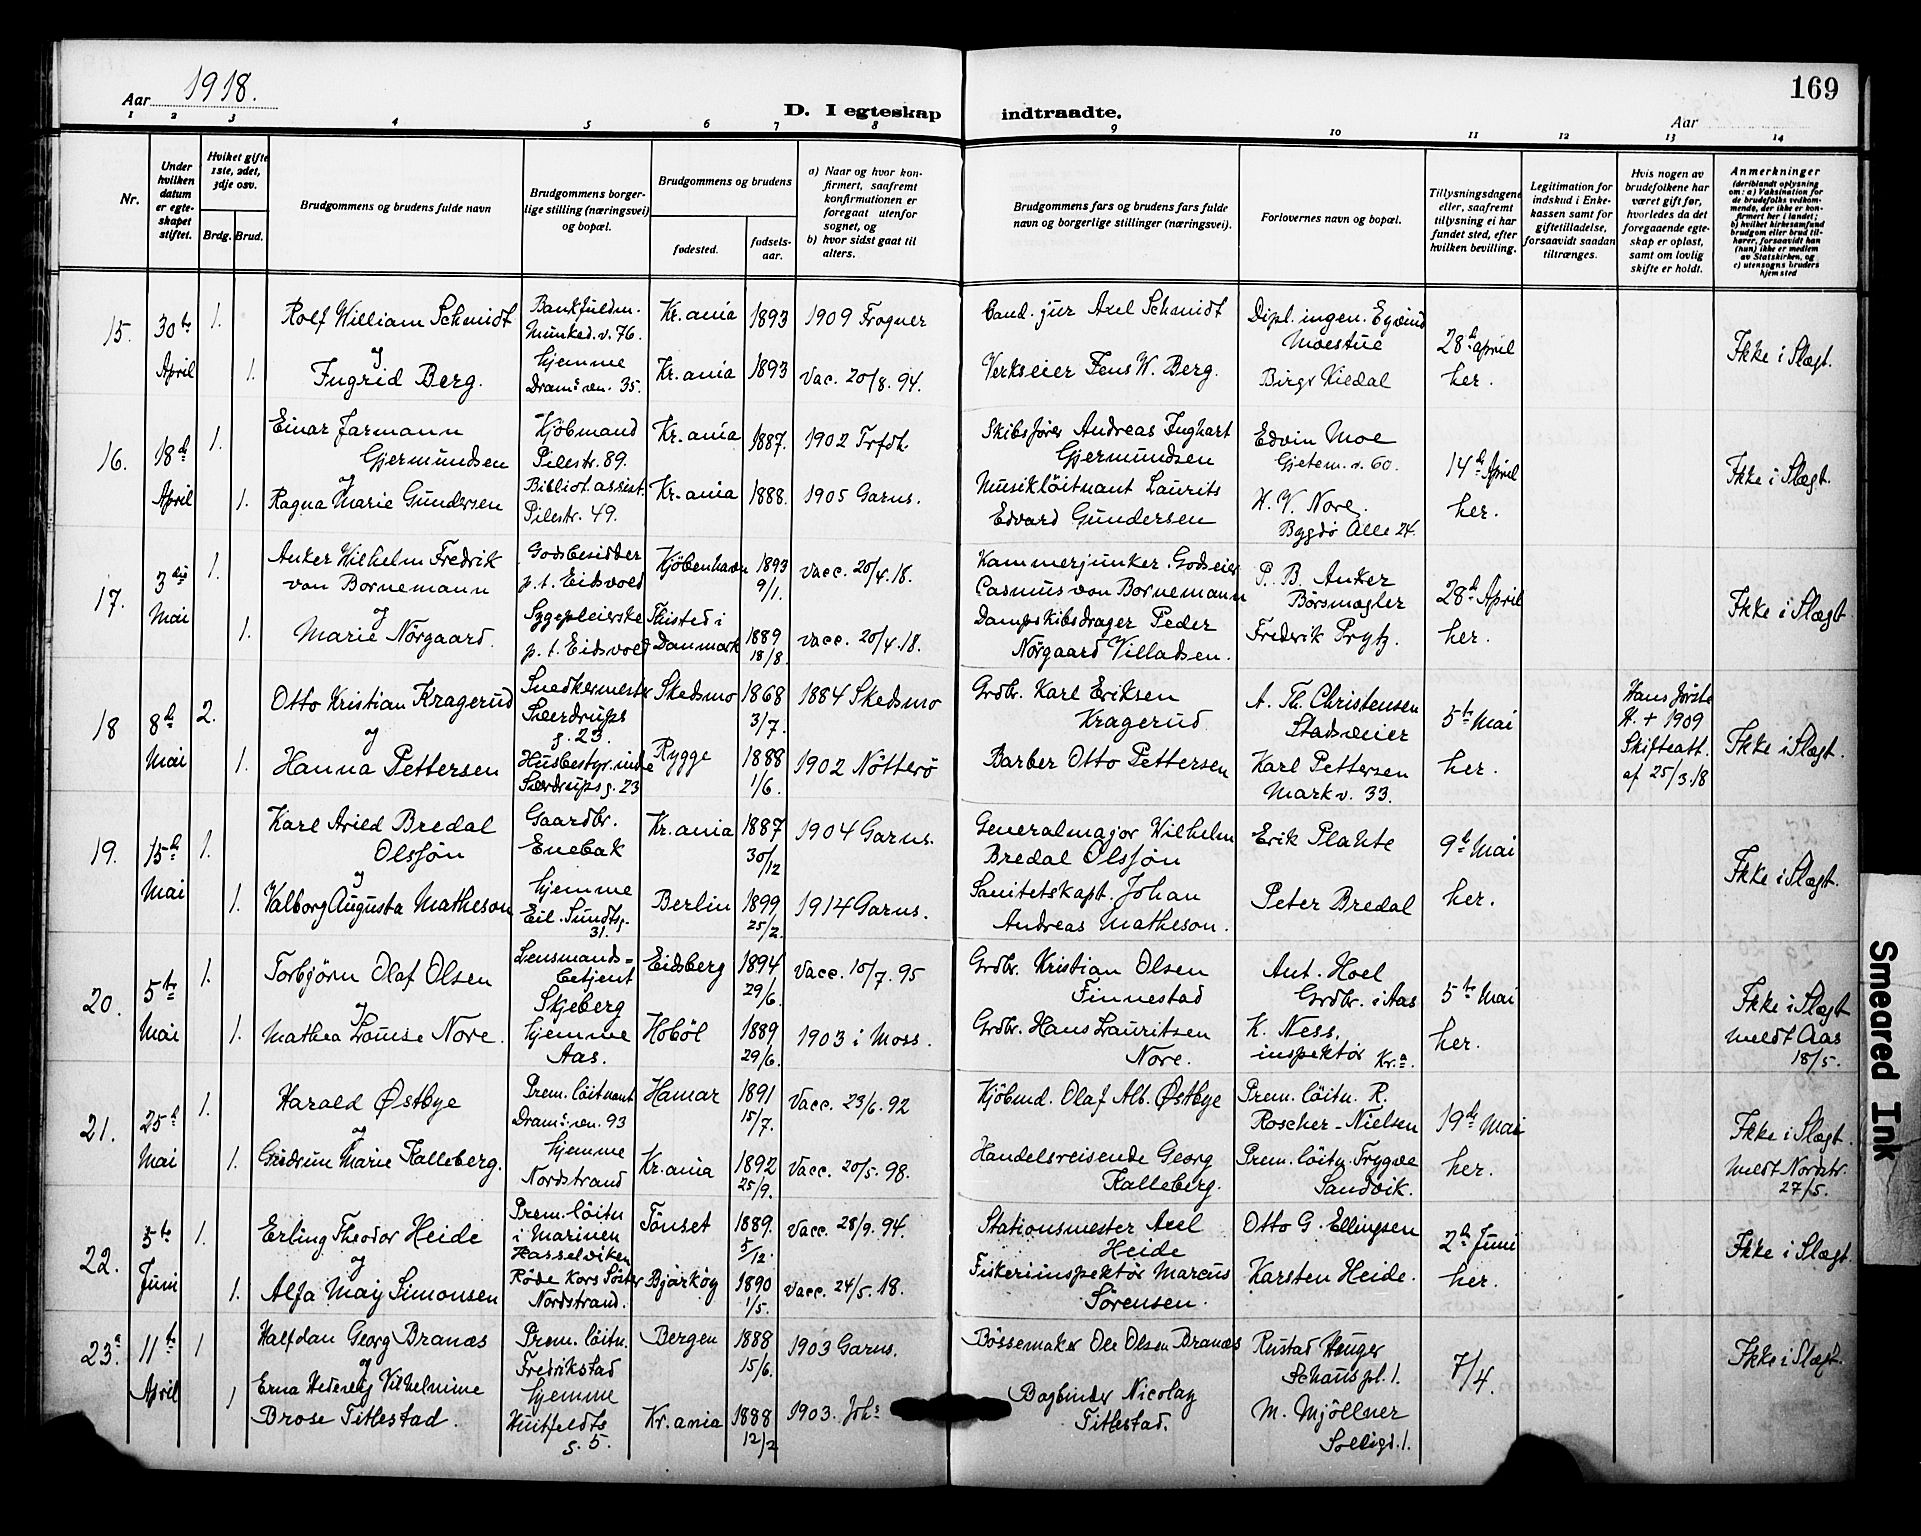 Aar 1918.
169
D. I egteskap indtraadte.
Aar
1 2 3 4 5 6 7 8 9 10 11 12 13 14
Nr.
Under hvilken datum er egte-skapet stiftet.
Hviket gifte 1ste, 2det, 3dje osv.
Brdg. Brud.
Brudgommens og brudens fulde navn
Brudgommens borger-lige stilling (næringsvei) og bopæl.
Brudgommens og brudens
fødested.
fødsels-aar.
a) Naar og hvor kon-firmert, saafremt konfirmationen er foregaat utenfor sognet, og
b) hvor sidst gaat til alters.
Brudgommens fars og brudens fars fulde navn og borgerlige stillinger (næringsvei).
Forlovernes navn og bopæl.
Tillysningsdagene eller, saafremt tillysning ei har fundet sted, efter hvilken bevilling.
Legitimation for indskud i Enke-kassen samt for giftetilladelse, forsaavidt saadan tiltrænges.
Hvis nogen av brudefolkene har været gift før, hvorledes da det foregaaende egte-skap er opløst, samt om lovlig skifte er holdt.
Anmerkninger
(deriblandt oplysning om: a) Vaksination for de brudefolks vedkom-mende, der ikke er kon-firmert her i landet; b) hvilket kirkesamfund brudgom eller brud til-hører, forsaavidt han (hun) ikke er medlem av Statskirken, og c) utensogns bruders hjemsted
15. 30te April 1. Rolf William Schmidt Bankfuldm. Munked.v. 76. Kr.ania 1893 1909 Frogner Cand. jur Axel Schmidt Dipl. ingen. Eyvind Moestue 28d april her. Ikke i Slægt.
og
1. Ingrid Berg. hjemme Drams.ven. 35. Kr.ania 1893 Vac. 20/8. 94. Verkseier Jens W. Berg. Birgr Kiedal
16. 18d April 1. Einar Jarmann Gjermundsen Kjöbmand Pilestr. 89. Kr.ania 1887. 1902 Trfdh. Skibsfører Andreas Inghart Gjermundsen Edvin Moe Gjetem. v. 60. 14d April her. Ikke i Slægt.
og
1. Ragna Marie Gundersen Bibliot.assist. Pilestr. 49. Kr.ania 1888. 1905 Garns. Musiklöitnant Laurits Edvard Gundersen H. V. Nore. Bygdø Alle 24.
17. 3die Mai 1. Anker Wilhelm Fredrik von Bornemann Godsbesidder p.t. Eidsvold Kjöbenhavn 1893 9/1. Vacc. 20/4.18. Kammerjunker. Godseier Casmus von Bornemann P. B. Anker Börsmægler 28d April her. Ikke i Slægt
og
1. Marie Nörgaard. Sygepleierske p.t. Eidsvold Thisted i Danmark 1889 18/8. vacc. 20/4.18. Dampskibsdrager Peder Nörgaard Villadsen. Frederik Prytz.
18 8d Mai 2. Otto Kristian Kragerud Snedkermester Sverdrups g. 23. Skedsmo 1868 3/7. 1884 Skedsmo Grdbr. Karl Eriksen Kragerud. A. Th. Christensen Stadsveier 5te Mai her. H. + 1909 Skifteatt. af 25/3.18 Ikke i Slægt.
og
1. Hanna Pettersen Husbestyrinde Sverdrupsg. 23 Rygge 1888 1/6. 1902 Nötterö Barber Otto Pettersen Karl Pettersen Mark v. 33.
19. 15d Mai 1. Karl Arild Bredal Olssön Gaardbr. Enebak Kr.ania 1887 30/12 1904 Garns. Generalmajor Wilhelm Bredal Olssön Erik Plahte 9d Mai her. Ikke i Slægt.
og
1. Valborg Augusta Matheson hjemme Eil. Sundtsg. 31. Berlin 1899 25/2. 1914 Garns. Sanitetskapt. Johan Andreas Matheson. Peter Bredal
20. 5te Mai 1. Torbjörn Olaf Olsen Lensmands-betjent Skjeberg Eidsberg 1894 29/6. Vacc. 10/7. 95 Grdbr. Kristian Olsen Finnestad Ant. Hoel Grdbr. i Aas 5te Mai her. Ikke i Slægt meldt Aas 18/5.
og
1. Mathea Louise Nore. hjemme Aas. Hobøl 1889 29/6. 1903 i Moss. Grdbr. Hans Lauritsen Nore. K. Ness. inspektör Kr.a.
21. 25d Mai 1. Harald Østbye Prem. löitnant Drams.ven. 93 Hamar 1891 15/7. Vacc. 23/6. 92 Kjöbmd. Olaf Alb. Østbye Prem. löitn. R. Roscher-Nielsen 19de Mai her. Ikke i Slægt. meldt Nordstr. 27/5.
og
1. Gudrun Marie Kalleberg. hjemme Nordstrand Kr.ania 1892 25/9. Vacc. 20/5. 98. Handelsreisende Georg Kalleberg. Prem. löitn. Trygve Sandvik.
22. 5te Juni 1. Erling Theodor Heide Prem. löitn i Marinen Hasselviken Tönset 1889. 5/12. Vacc. 28/9. 94. Stationsmester Axel Heide Otto G. Ellingsen 2d Juni her. Ikke i Slægt.
og
1. Alfa May Simonsen Röde Kors Söster Nordstrand. Bjarköy 1890 1/5. Vacc. 24/5. 18. Fiskeriinspektör Marcus Sörensen. Karsten Heide.
23.a 11te April 1 Halfdan Georg Branæs Prem. löitn. Fredrikstad Bergen 1888 15/6. 1903 Garns. Bössemaker Ole Olsen Branæs Rustad Hauger Schaus pl. 1. 7/4. Ikke i Slægt.
og
1 Erna Hedevig Vilhelmine Brose Titlestad. hjemme Huitfeldts g. 5. Kr.ania 1888 12/2 1903. Johs Bogbinder Nicolay Titlestad. M. Mjöllner Solligt. 1.
Smeared Ink